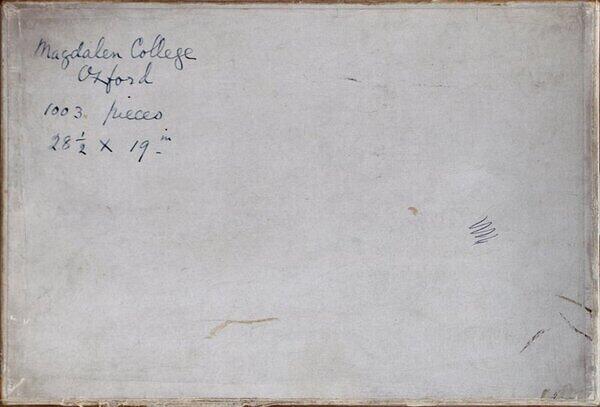 Magdalen College
Oxford
1003 pieces
28 1/2 X 19 in